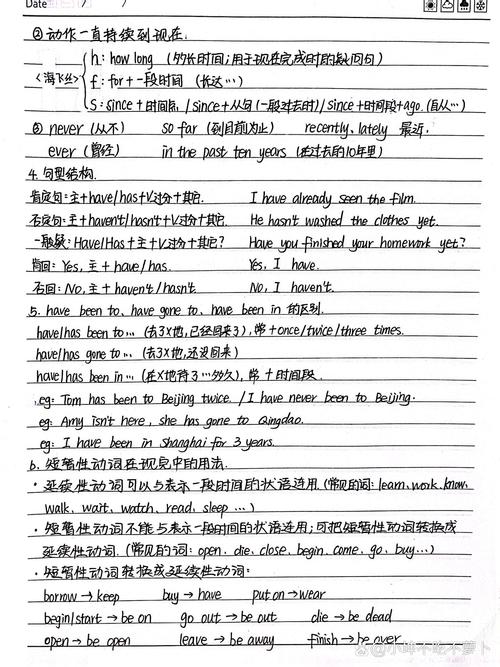 Date / /
② 动作一直持续到现在:
<海飞丝>
h: how long (多长时间;用于现在完成时的疑问句)
f: for + 一段时间 (长达…)
s: since + 时间点 / since + 从句 (一般过去时) / since + 时间段 + ago. (自从…)
③ never (从不) so far (到目前为止) recently, lately 最近.
ever (曾经) in the past ten years (在过去的10年里)
4. 句型结构.
肯定句: 主 + have/has + V过分 + 其它. I have already seen the film.
否定句: 主 + haven't/hasn't + V过分 + 其它. He hasn't washed the clothes yet.
一般疑: Have/Has + 主 + V过分 + 其它? Have you finished your homework yet?
肯回: Yes, 主 + have/has. Yes, I have.
否回: No, 主 + haven't/hasn't No, I haven't.
5. have been to、have gone to、have been in 的区别.
have/has been to… (去了X地,已经回来了), 常 + once/twice/three times.
have/has gone to… (去了X地,还没回来)
have/has been in… (在X地待了…多久), 常 + 时间段.
eg: Tom has been to Beijing twice. / I have never been to Beijing.
eg: Amy isn't here, she has gone to Qingdao.
eg: I have been in Shanghai for 3 years.
6. 短暂性动词在现完中的用法.
· 延续性动词可以与表示一段时间的状语连用. (常见的词: learn、work、know、
walk、wait、watch、read、sleep …)
· 短暂性动词不能与表示一段时间的状语连用;可把短暂性动词转换成
延续性动词. (常见的词: open、die、close、begin、come、go、buy…)
· 短暂性动词转换成延续性动词:
borrow → keep buy → have put on → wear
begin/start → be on go out → be out die → be dead
open → be open leave → be away finish → be over